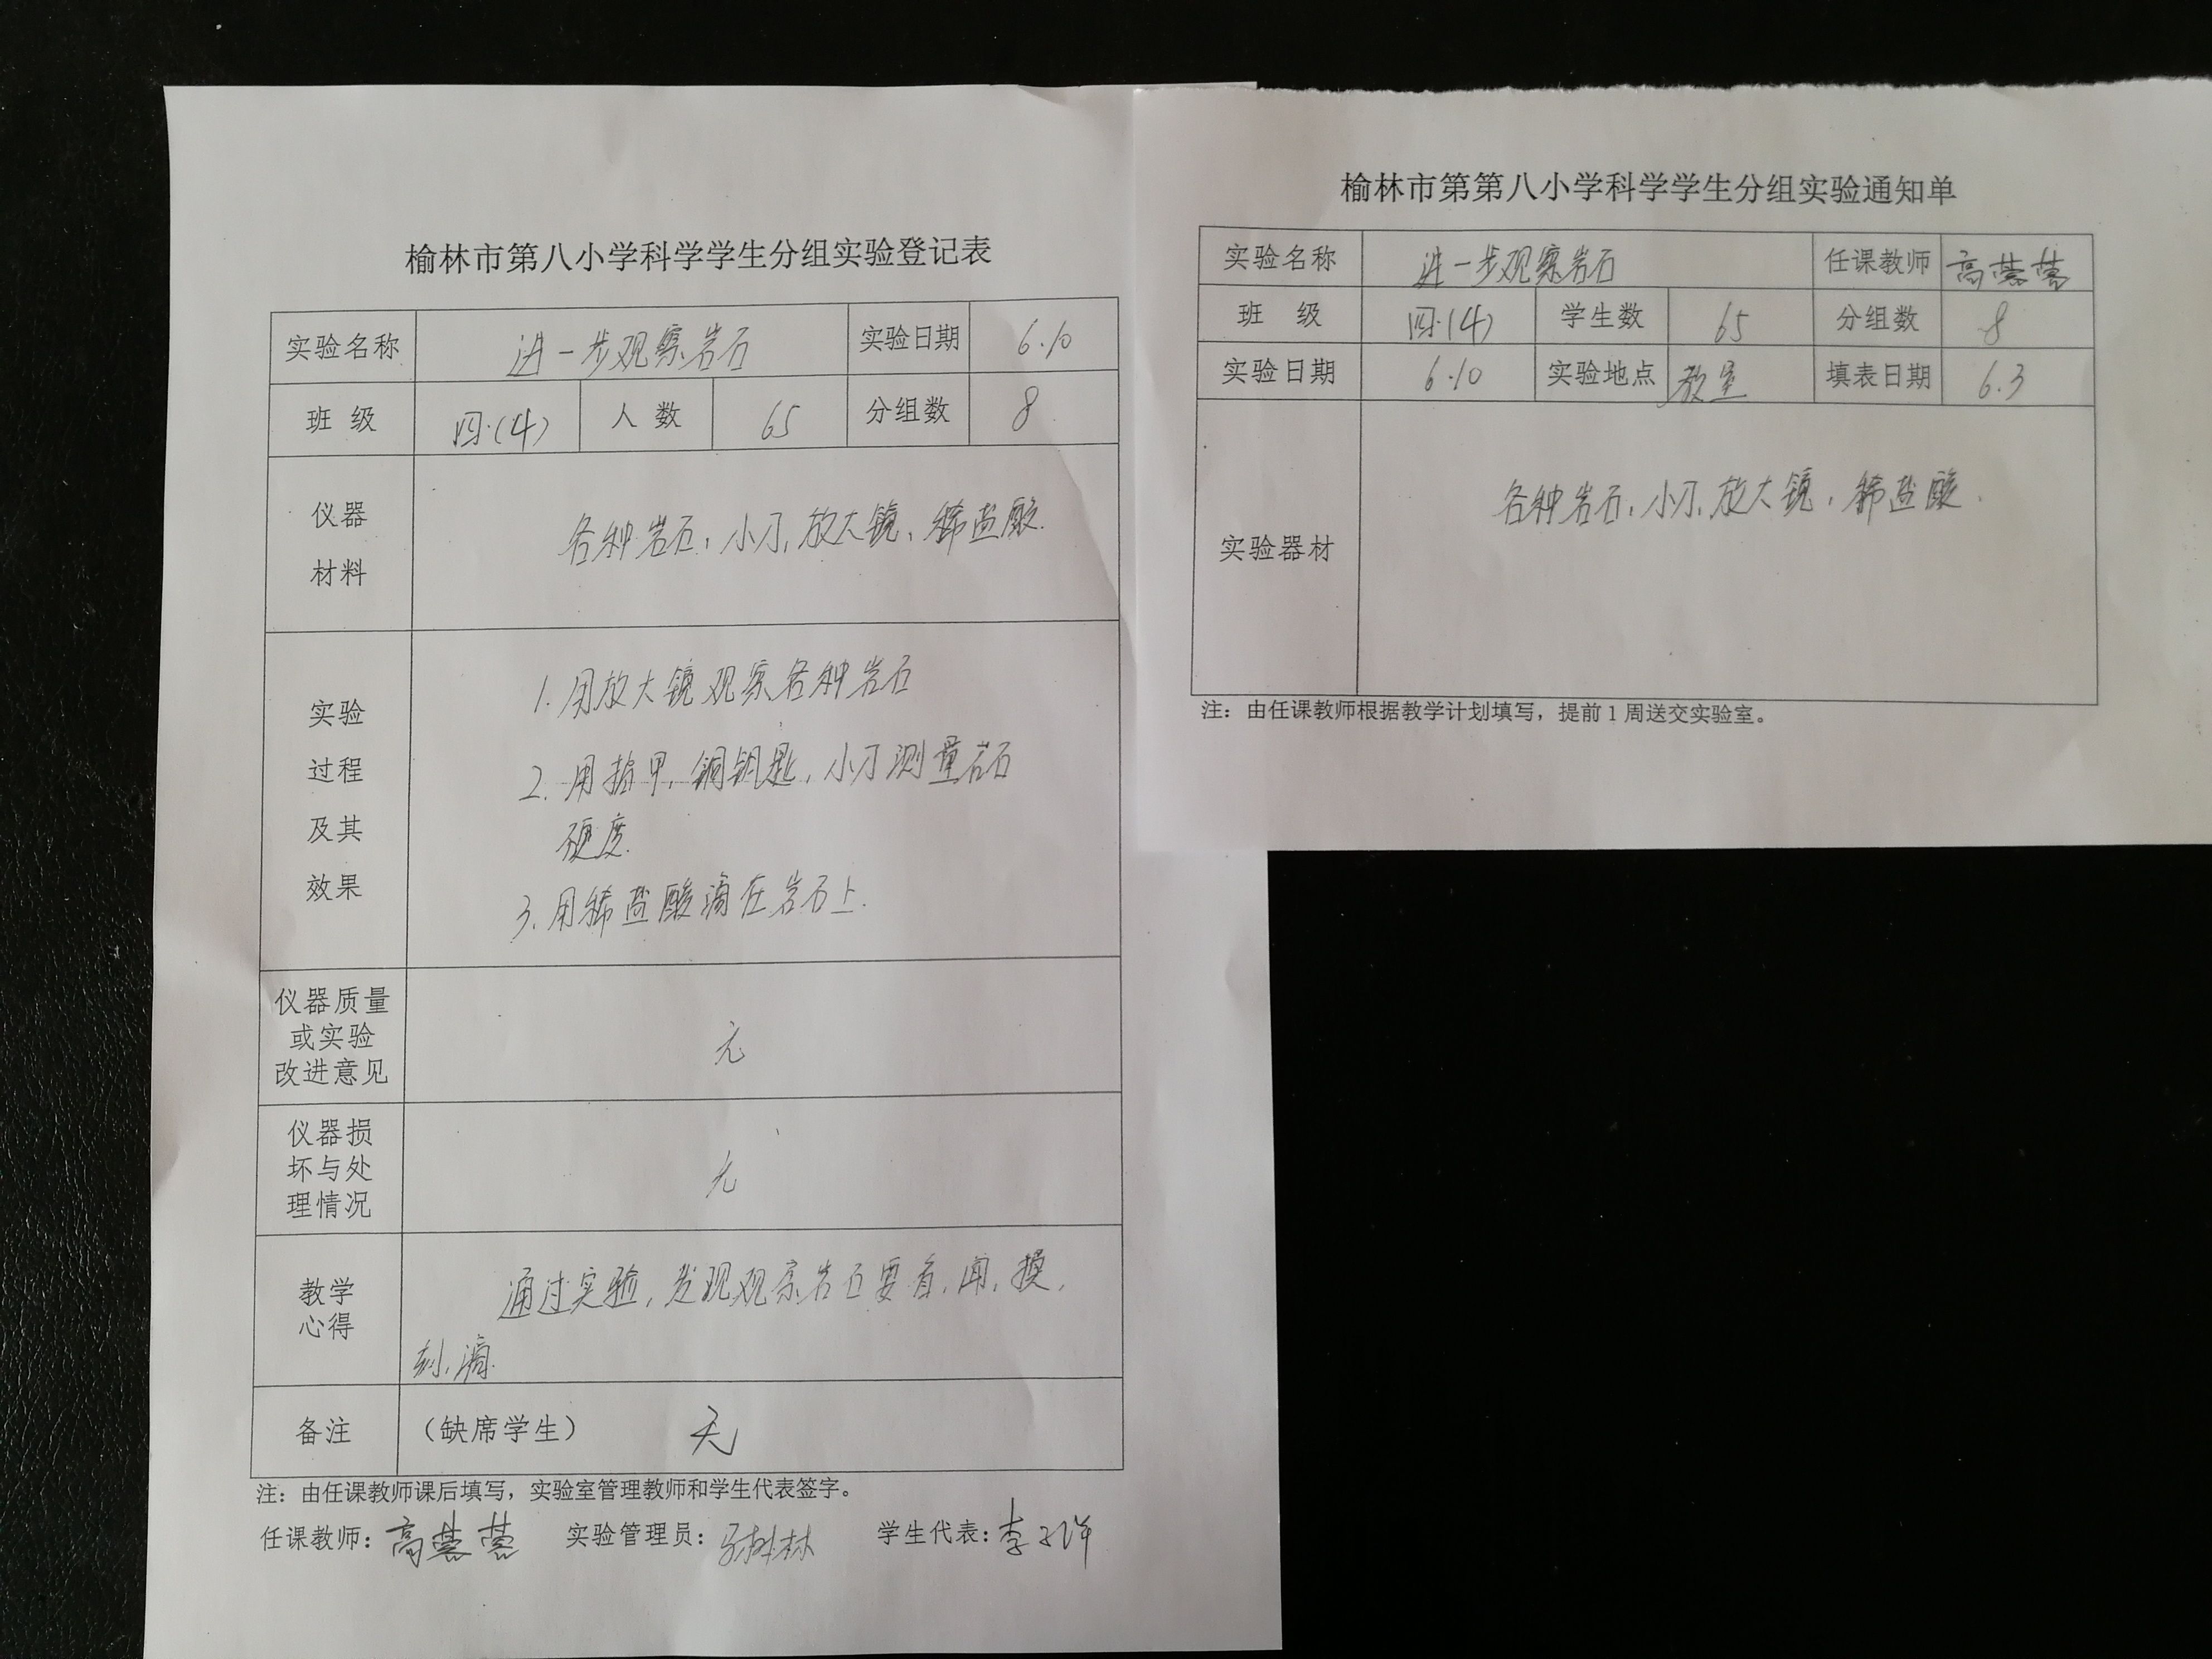 榆林市第八小学科学学生分组实验登记表
实验名称 进一步观察岩石 实验日期 6.10
班 级 四·(4) 人 数 65 分组数 8
仪器
材料
各种岩石,小刀,放大镜,稀盐酸.
实验
过程
及其
效果
1.用放大镜观察各种岩石
2.用指甲,铜钥匙,小刀测量岩石
硬度.
3.用稀盐酸滴在岩石上.
仪器质量
或实验
改进意见
无
仪器损
坏与处
理情况
无
教学
心得
通过实验,发现观察岩石要看,闻,摸,
刻,滴.
备注 (缺席学生) 无
注:由任课教师课后填写,实验室管理教师和学生代表签字。
任课教师:高 实验管理员: 林 学生代表:李子
榆林市第第八小学科学学生分组实验通知单
实验名称 进一步观察岩石 任课教师 高
班 级 四·(4) 学生数 65 分组数 8
实验日期 6.10 实验地点 教室 填表日期 6.3
实验器材
各种岩石,小刀,放大镜,稀盐酸.
注:由任课教师根据教学计划填写,提前1周送交实验室。